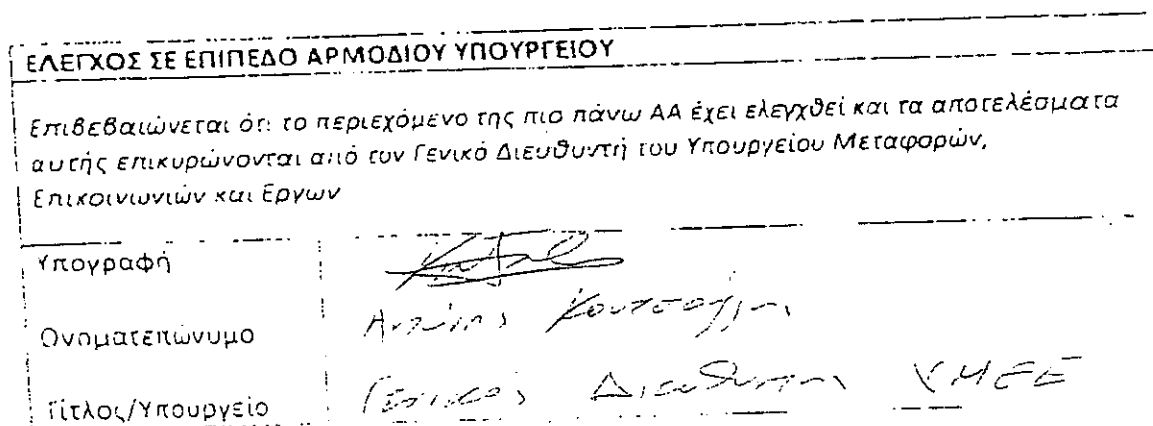 ΕΛΕΓΧΟΣ ΣΕ ΕΠΙΠΕΔΟ ΑΡΜΟΔΙΟΥ ΥΠΟΥΡΓΕΙΟΥ
Επιβεβαιώνεται ότι το περιεχόμενο της πιο πάνω ΑΑ έχει ελεγχθεί και τα αποτελέσματα
αυτής επικυρώνονται από τον Γενικό Διευθυντή του Υπουργείου Μεταφορών,
Επικοινωνιών και Εργων
Υπογραφή
Ονοματεπώνυμο Αντώνης
Τίτλος/Υπουργείο Γενικός Διευθυντής ΥΜΕΕ